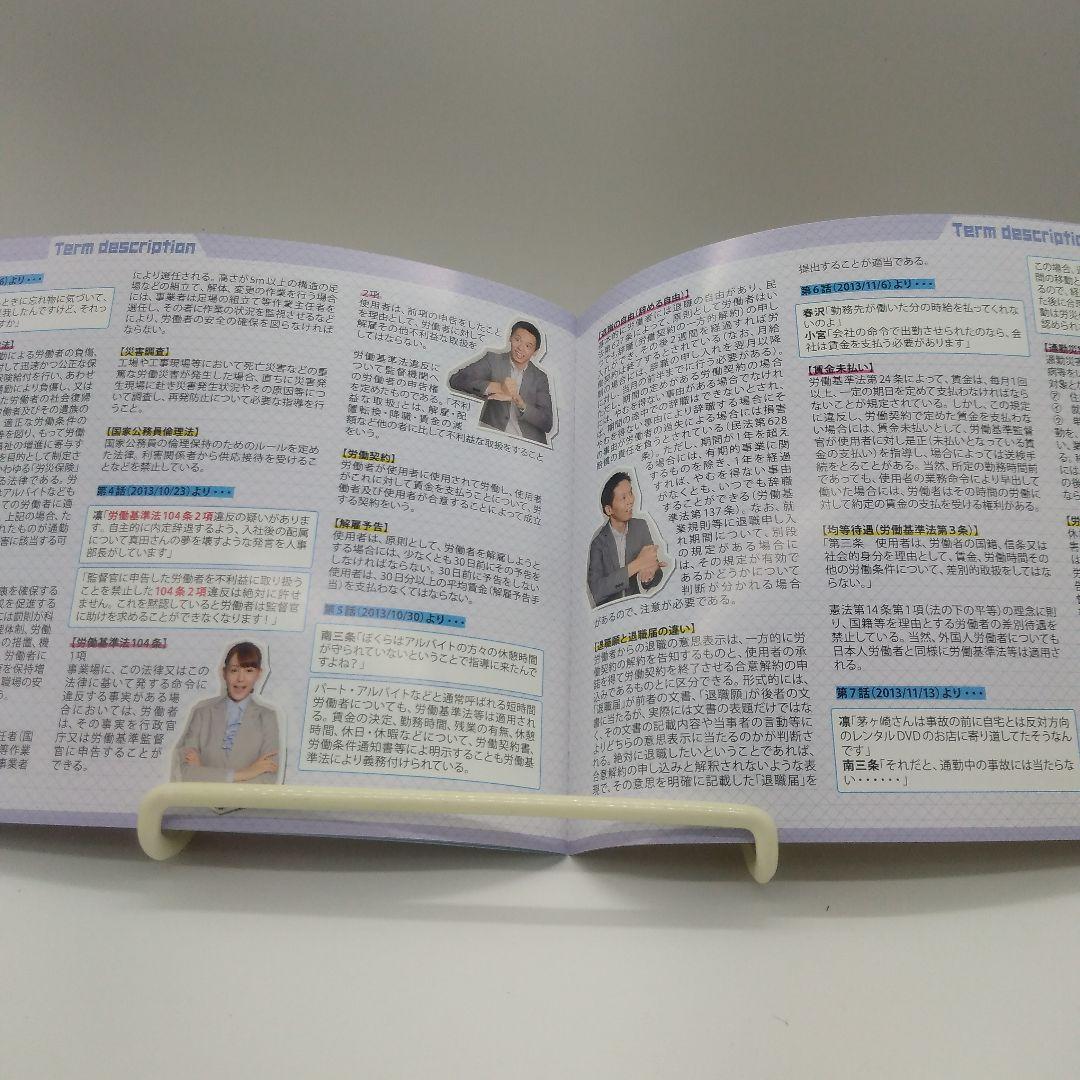 Term description
6)より・・・
ときに忘れ物に気づいて、
我したんですけど、それっ
すか」
法】
動による労働者の負傷、
対して迅速かつ公正な保
保険給付を行い、あわせ
動により負傷し、又は
た労働者の社会復帰
労働者及びその遺族の
適正な労働条件の
等を図り、もって労働
福祉の増進に寄与す
を目的として制定さ
いわゆる「労災保険」
る法律である。労
アルバイトなども
ての労働者に適
上記の場合、た
れたものが通勤
害に該当する可
康を確保する
成を促進する
には罰則が科
理体制、労働
の措置、機
労働者に
を保持増
職場の安
う。
任者(国
等作業
事業者
により選任される。高さが5m以上の構造の足
場などの組立て、解体、変更の作業を行う場合
には、事業者は足場の組立て等作業主任者を
選任し、その者に作業の状況を監視させるなど
により、労働者の安全の確保を図らなければ
ならない。
【災害調査】
工場や工事現場等において死亡災害などの重
篤な労働災害が発生した場合、直ちに災害発
生現場に赴き災害発生状況やその原因等につ
いて調査し、再発防止について必要な指導を行
うこと。
【国家公務員倫理法】
国家公務員の倫理保持のためのルールを定め
た法律。利害関係者から供応接待を受けるこ
となどを禁止している。
第4話(2013/10/23)より・・・
凛「労働基準法104条2項違反の疑いがありま
す。自主的に内定辞退するよう、入社後の配属
について真田さんの夢を壊すような発言を人事
部長がしています」
「監督官に申告した労働者を不利益に取り扱う
ことを禁止した104条2項違反は絶対に許せ
ません。これを黙認していると労働者は監督官
に助けを求めることができなくなります！」
【労働基準法104条】
1項
事業場に、この法律又はこの
法律に基いて発する命令に
違反する事実がある場
合においては、労働者
は、その事実を行政官
庁又は労働基準監督
官に申告することが
できる。
2項
使用者は、前項の申告をしたこと
を理由として、労働者に対して
解雇その他不利益な取扱を
してはならない。
労働基準法違反に
ついて監督機関へ
の労働者の申告権
を定めたものである。「不利
益な取扱」とは、解雇・配
置転換・降職・賃金の減
額など他の者に比して不利益な取扱をすること
をいう。
【労働契約】
労働者が使用者に使用されて労働し、使用者
がこれに対して賃金を支払うことについて、労
働者及び使用者が合意することによって成立
する契約をいう。
【解雇予告】
使用者は、原則として、労働者を解雇しようと
する場合には、少なくとも30日前にその予告を
しなければならない。30日前に予告をしない
使用者は、30日分以上の平均賃金(解雇予告手
当)を支払わなくてはならない。
第5話(2013/10/30)より・・・
南三条「ぼくらはアルバイトの方々の休憩時間
が守られていないということで指導に来たんで
すよね？」
パート・アルバイトなどと通常呼ばれる短時間
労働者についても、労働基準法等は適用され
る。賃金の決定、勤務時間、残業の有無、休憩
時間、休日・休暇などについて、労働契約書、
労働条件通知書等により明示することも労働基
準法により義務付けられている。
Term descriptio
【退職の自由(辞める自由)】
る場合には、有期的事業に関
するものを除き、1年を経過
すれば、やむを得ない事由
がなくとも、いつでも辞職
することができる(労働基
準法第137条)。なお、就
業規則等に退職申し入
れ期間について、別段
の規定がある場合に
は、その規定が有効で
あるかどうかについて
判断が分かれる場合
があるので、注意が必要である。
【退職願と退職届の違い】
労働者からの退職の意思表示は、一方的に労
働契約の解約を告知するものと、使用者の承
諾を得て労働契約を終了させる合意解約の申
込みであるものとに区分できる。形式的には、
「退職届」が前者の文書、「退職願」が後者の文
書に当たるが、実際には文書の表題だけではな
く、その文書の記載内容や当事者の言動等に
よりどちらの意思表示に当たるのかが判断さ
れる。絶対に退職したいということであれば、
合意解約の申し込みと解釈されないような表
現で、その意思を明確に記載した「退職届」を
提出することが適当である。
第6話(2013/11/6)より・・・
春沢「勤務先が働いた分の時給を払ってくれな
いのよ」
小宮「会社の命令で出勤させられたのなら、会
社は賃金を支払う必要があります」
【賃金未払い】
労働基準法第24条によって、賃金は、毎月1回
以上、一定の期日を定めて支払わなければなら
ないことが規定されている。しかし、この規定
に違反し、労働契約で定めた賃金を支払わな
い場合には、賃金未払いとして、労働基準監督
官が使用者に対し是正(未払いとなっている賃
金の支払い)を指導し、場合によっては送検手
続をとることがある。当然、所定の勤務時間前
であっても、使用者の業務命令により早出して
働いた場合には、労働者はその時間の労働に
対して約定の賃金の支払を受ける権利がある。
【均等待遇(労働基準法第3条)】
「第三条　使用者は、労働者の国籍、信条又は
社会的身分を理由として、賃金、労働時間その
他の労働条件について、差別的取扱をしてはな
らない。」
憲法第14条第1項(法の下の平等)の理念に則
り、国籍等を理由とする労働者の差別待遇を
禁止している。当然、外国人労働者についても
日本人労働者と同様に労働基準法等は適用さ
れる。
第7話(2013/11/13)より・・・
凛「茅ヶ崎さんは事故の前に自宅とは反対方向
のレンタルDVDのお店に寄り道してたそうなん
です」
南三条「それだと、通勤中の事故には当たらな
い・・・・・・」
この場合、
間の移動と
るので、
た後に合
動は労災
認められ
【通勤災
通勤災
病等を
対象と